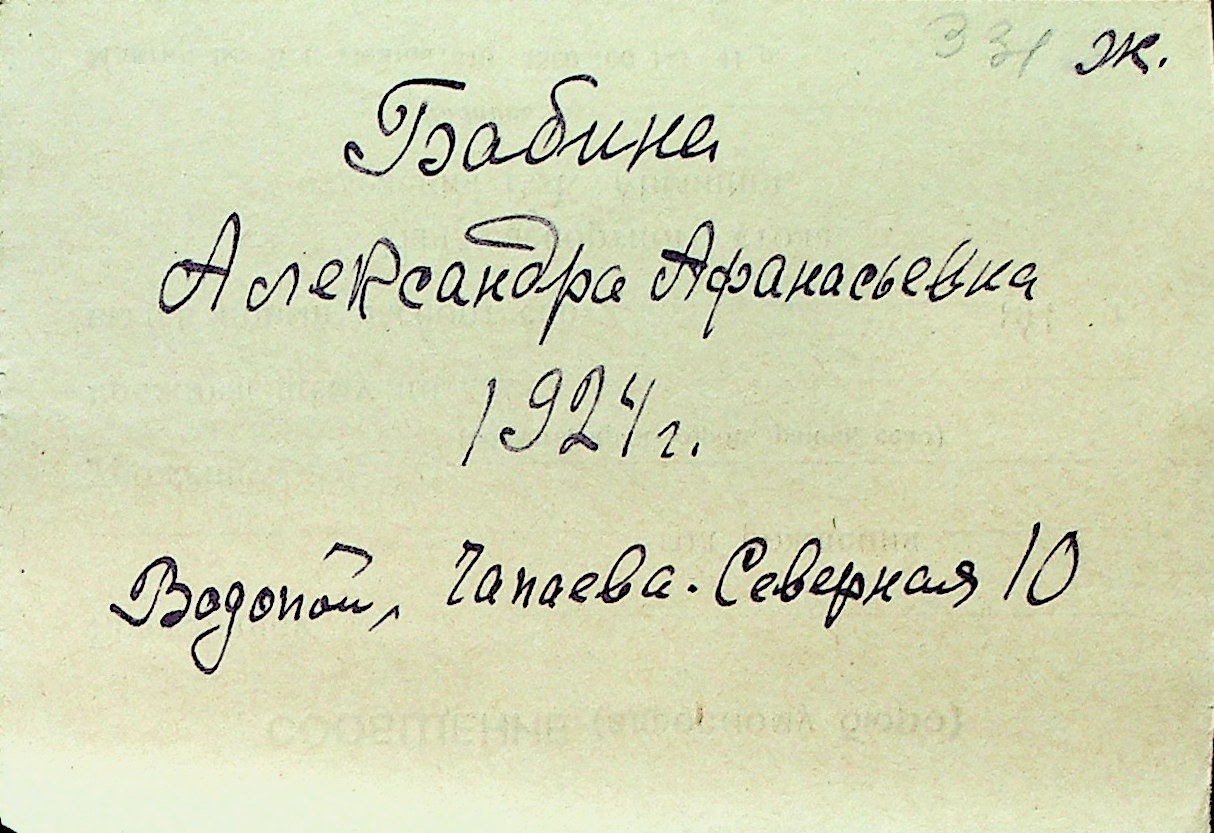 331 ж.
Бабина
Александра Афанасьевна
1924 г.
Водопой, Чапаева-Северная 10
СООБЩЕНИЕ